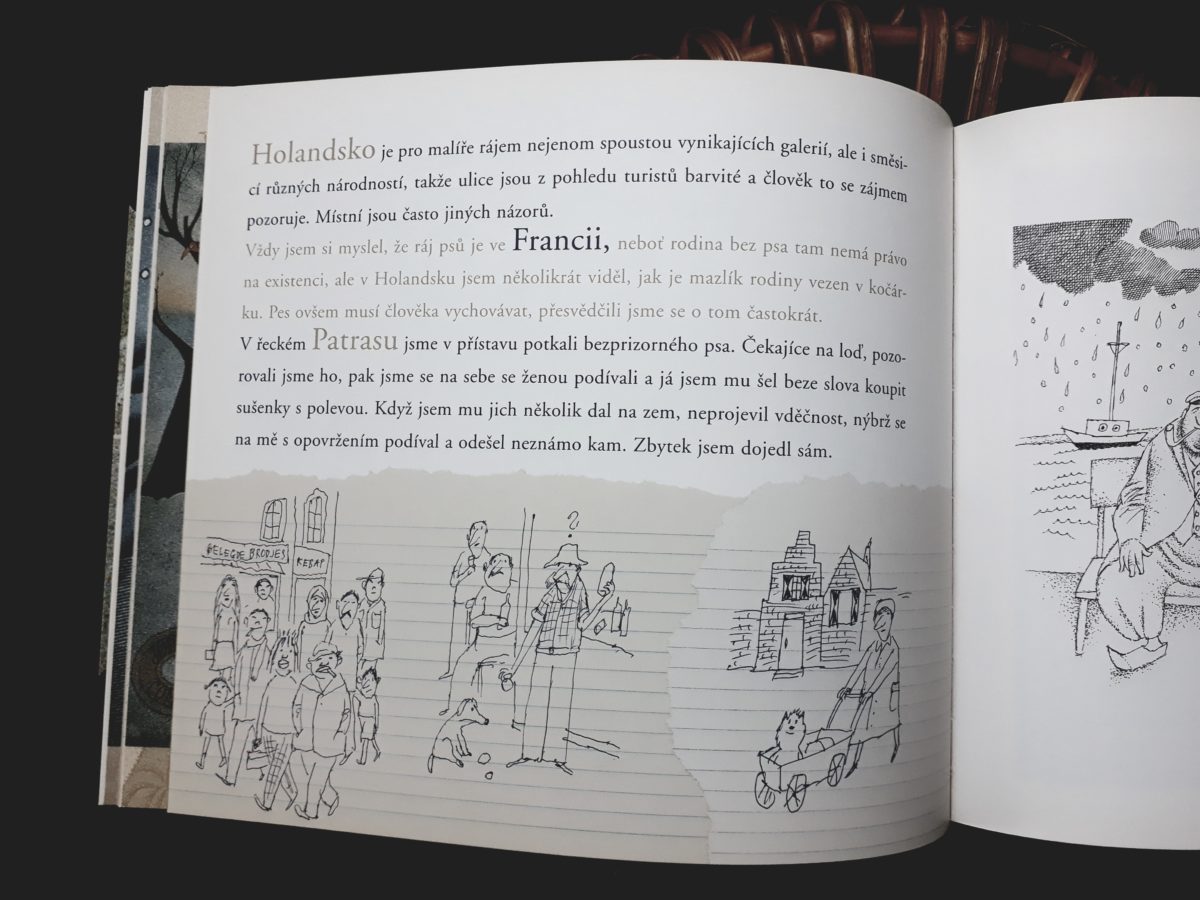 Holandsko je pro malíře rájem nejenom spoustou vynikajících galerií, ale i směsi-
cí různých národností, takže ulice jsou z pohledu turistů barvité a člověk to se zájmem
pozoruje. Místní jsou často jiných názorů.
Vždy jsem si myslel, že ráj psů je ve Francii, neboť rodina bez psa tam nemá právo
na existenci, ale v Holandsku jsem několikrát viděl, jak je mazlík rodiny vezen v kočár-
ku. Pes ovšem musí člověka vychovávat, přesvědčili jsme se o tom častokrát.
V řeckém Patrasu jsme v přístavu potkali bezprizorného psa. Čekajíce na loď, pozo-
rovali jsme ho, pak jsme se na sebe se ženou podívali a já jsem mu šel beze slova koupit
sušenky s polevou. Když jsem mu jich několik dal na zem, neprojevil vděčnost, nýbrž se
na mě s opovržením podíval a odešel neznámo kam. Zbytek jsem dojedl sám.
BELEGDE BRODJES
KEBAP
?